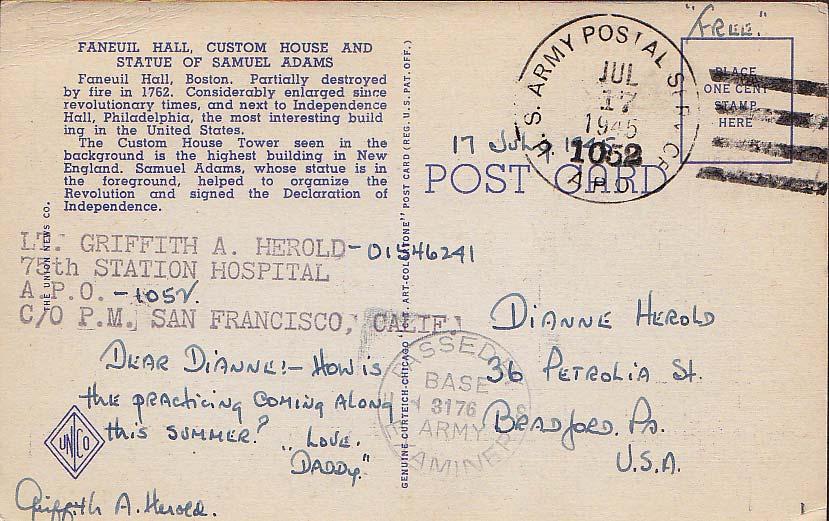 FANEUIL HALL, CUSTOM HOUSE AND
STATUE OF SAMUEL ADAMS
Faneuil Hall, Boston. Partially destroyed
by fire in 1762. Considerably enlarged since
revolutionary times, and next to Independence
Hall, Philadelphia, the most interesting build
ing in the United States.
The Custom House Tower seen in the
background is the highest building in New
England. Samuel Adams, whose statue is in
the foreground, helped to organize the
Revolution and signed the Declaration of
Independence.
THE UNION NEWS CO.
LT. GRIFFITH A. HEROLD-01546241
75th STATION HOSPITAL
A.P.O. -1052.
C/O P.M. SAN FRANCISCO, CALIF.
DEAR DIANNE!- HOW IS
the PRACTICING COMING ALONG
this SUMMER? "LOVE.
DADDY."
UNCO
Griffith A. Herold.
GENUINE CURTEICH-CHICAGO "C.T. ART-COLORTONE" POST CARD (REG. U.S. PAT. OFF.)
"FREE."
PLACE
ONE CENT
STAMP
HERE
U.S. ARMY POSTAL SERVICE
JUL
17
1945
1052
A.P.O.
17 July, 1945
POST CARD
PASSED BY
BASE
3176
ARMY
EXAMINER
DIANNE HEROLD
36 PETROLIA St.
BRADFORD. Pa.
U.S.A.